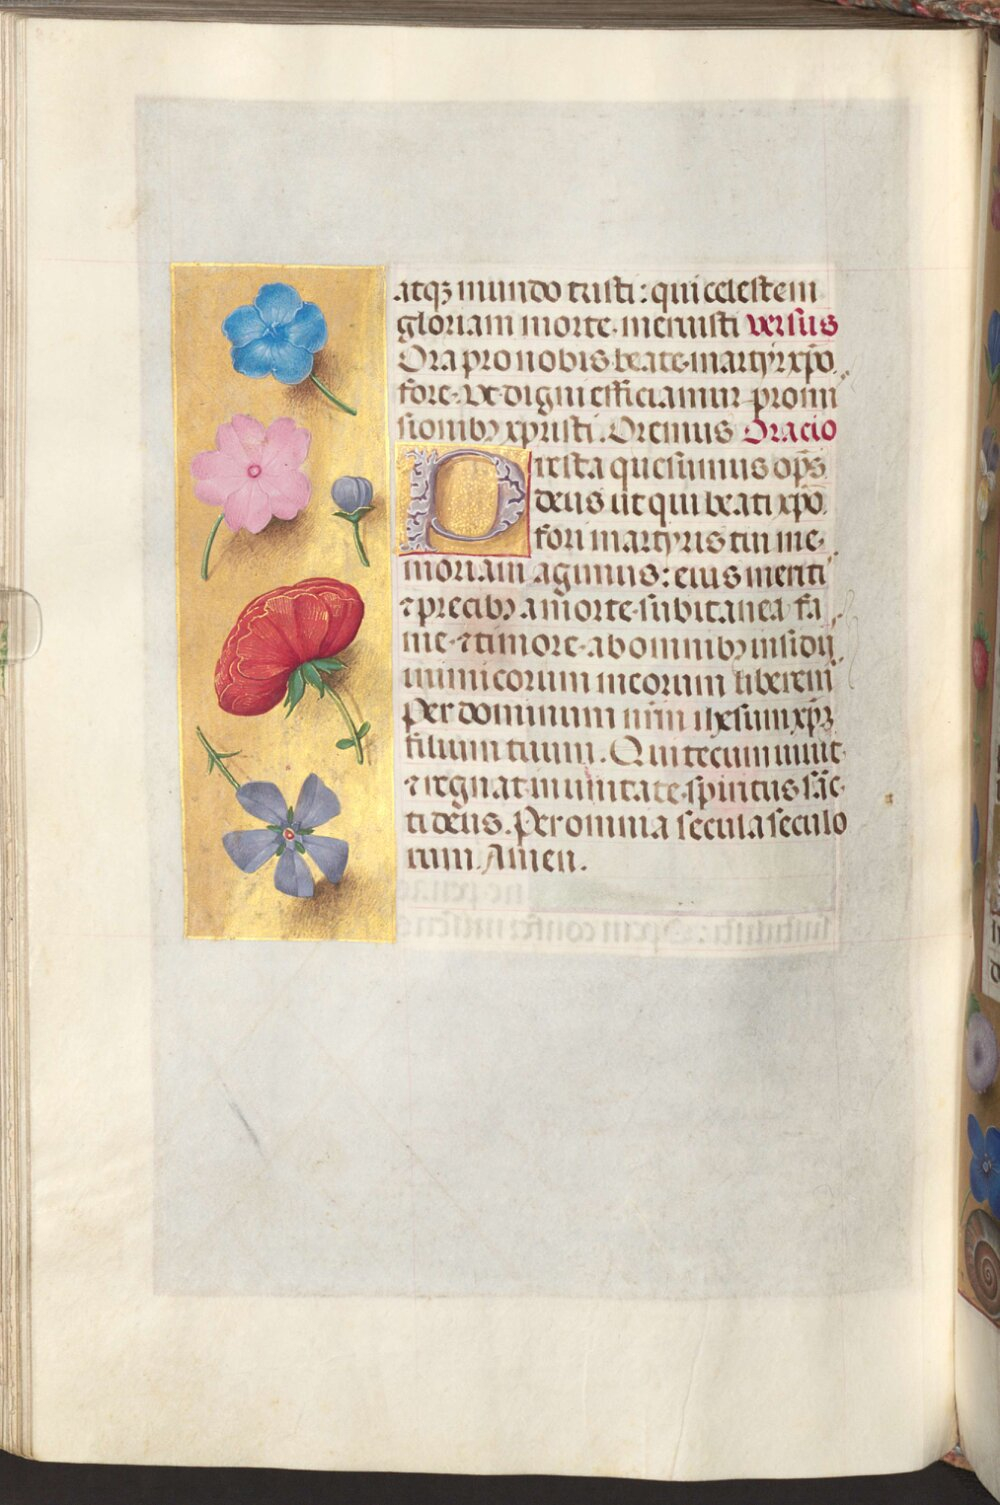 atqꝫ mundo tristi : qui celestem
gloriam morte meruisti versus
Ora pro nobis beate martyr xp̄o
fore. Vt digni efficiamur promi
sionibꝫ xpristi. Oremus Oracio
Presta quesumus op̄s
deus ut qui beati xp̄o
fori martyris tui me
moriam agimus : eius meriti
⁊ precibꝫ a morte subitanea fa
me ⁊ timore ab omnibꝫ insidij
inimicorum meorum liberem
Per dominum nr̄m ihesum xp̄ꝫ
filium tuum. Qui tecum uiuit
⁊ regnat in unitate spiritus sāc
ti deus. Per omnia secula seculo
rum. Amen.